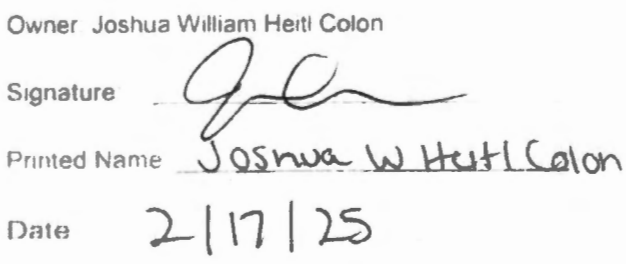 Owner Joshua William Heitl Colon
Signature
Printed Name Joshua W Heitl Colon
Date 2/17/25